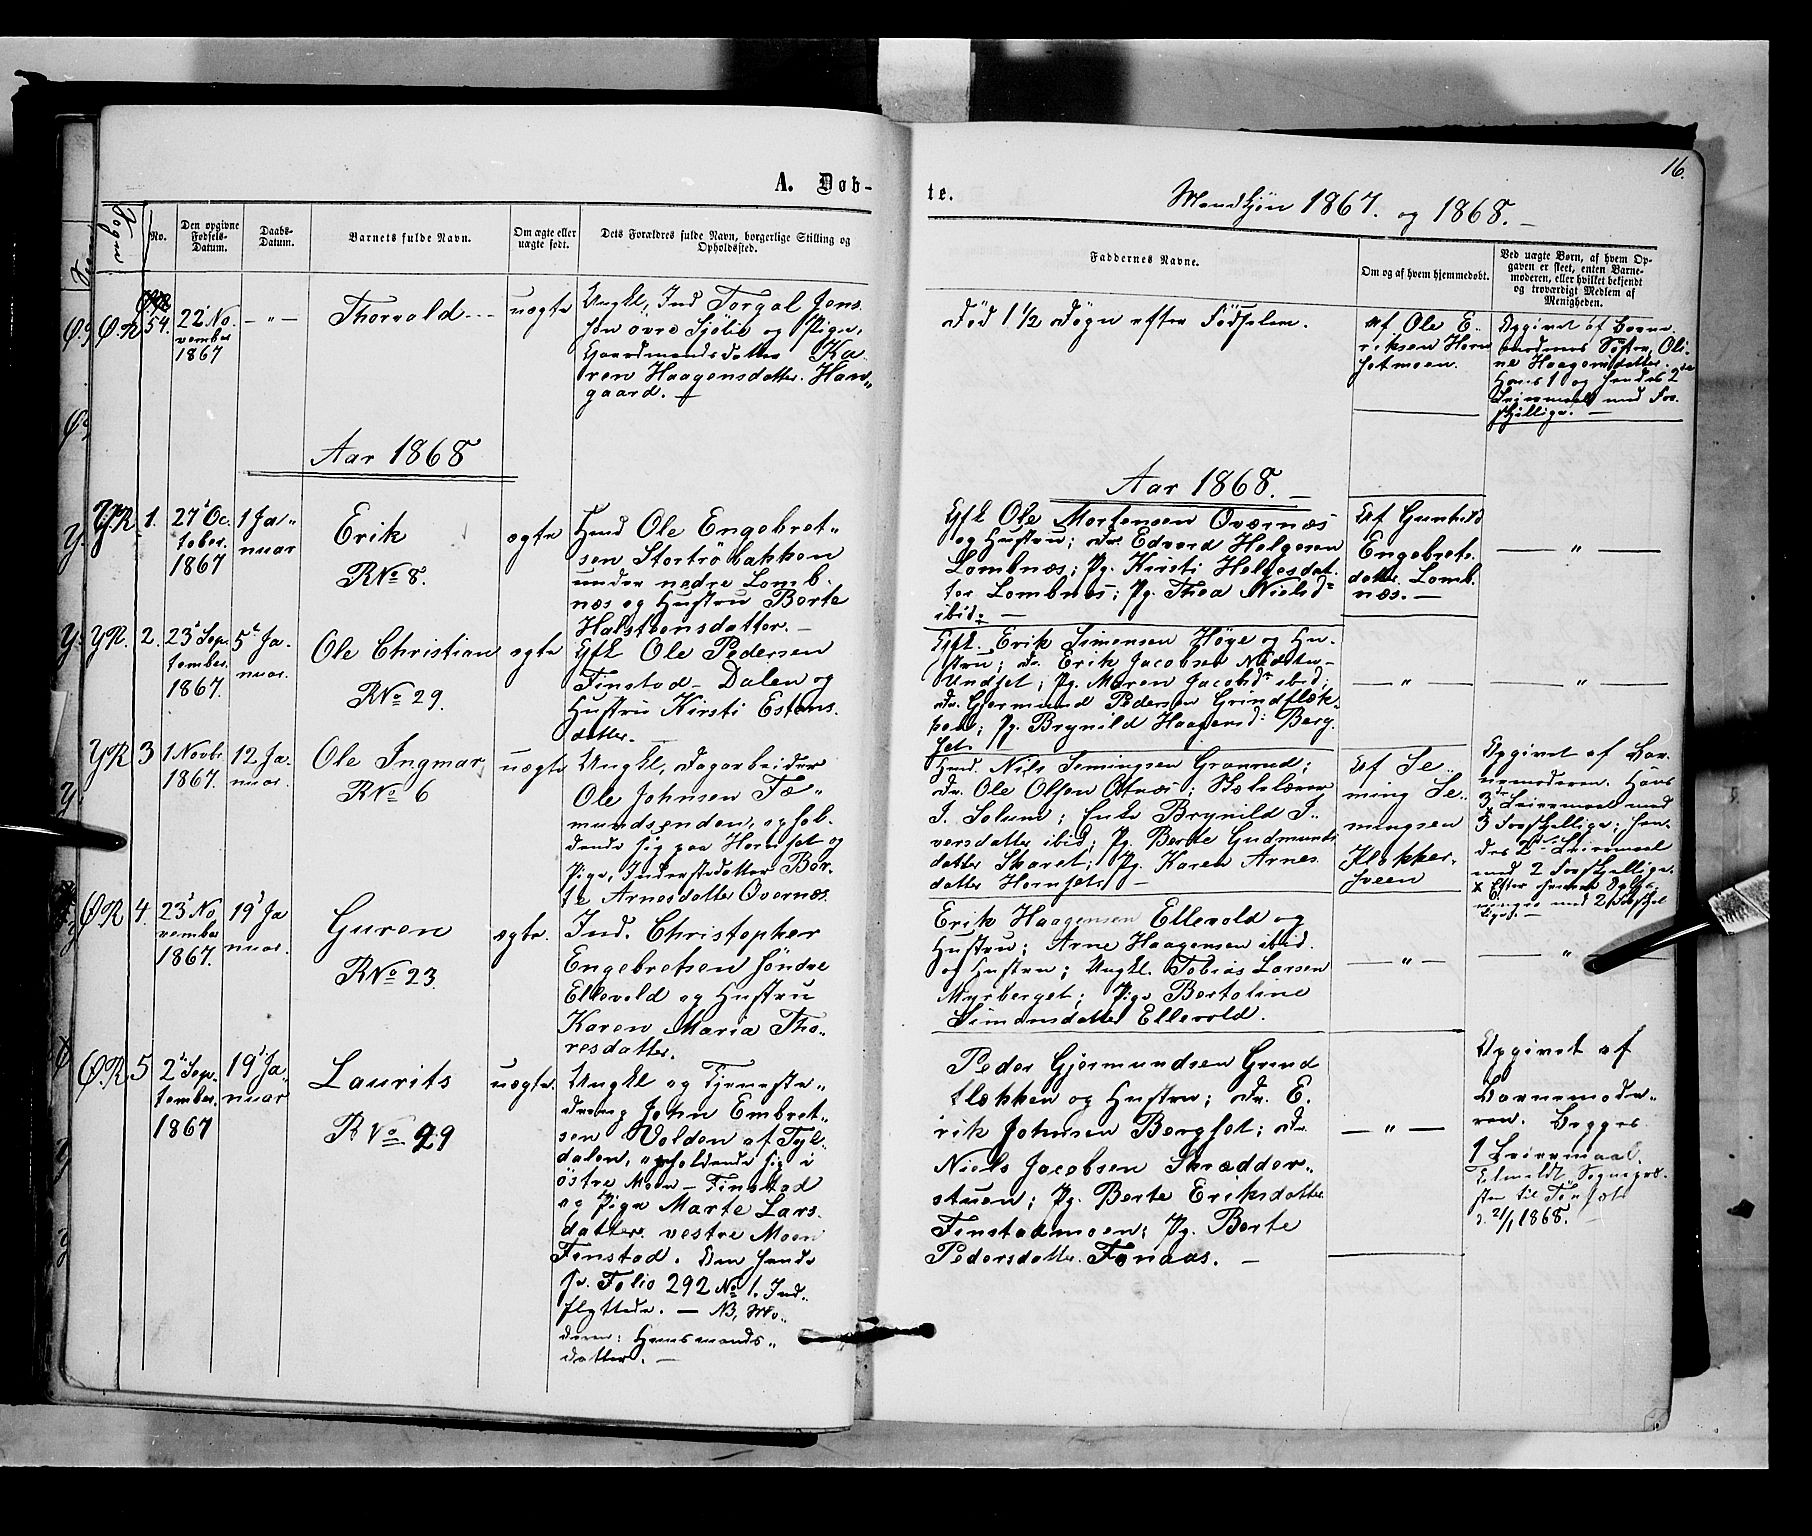 16.
A. Døb-
te.
Mandkjøn 1867. og 1868. —
Sogn
No.
Den opgivne Fødsels-Datum.
Daabs-Datum.
Barnets fulde Navn.
Om ægte eller uægte født.
Dets Forældres fulde Navn, borgerlige Stilling og Opholdssted.
Faddernes Navne.
Om og af hvem hjemmedøbt.
Ved uægte Børn, af hvem Op-
gaven er skeet, enten Barne-
moderen, eller hvilket bekjendt
og troværdigt Medlem af
Menigheden.
ØR
54.
22 No-
vember
1867
— „ —
Thorvald
uægte
Ungkl, Ind Torgal Jens
søn øvre Sjølie og Pige,
Gaardmandsdatter Ka-
ren Haagensdatter. Haw„
gaard.
Død 1½ Døgn efter Fødselen.
Af Ole E-
riksen Horn
setmoen.
Opgivet af Barne-
moderens Søster, Oli-
ne Haagensdatter.
Hans 1 og hendes 2
Leiermaal med For-
skjellige. —
Aar 1868
Aar 1868. —
YR. 1.
27 Oc-
tober.
1867
1 Ja„
nuar
Erik
RNo 8.
ægte
Hmd Ole Engebret„
sen Stortrøbakken
under nedre Lomb-
næs og Hustru Berte
Halstensdatter. —
Gfl Ole Mortensen Overnæs
og Hustru; Dr. Edvard Helgesen
Lombnæs; Pg. Kirsti Helgesdat-
ter Lombnæs; Pg. Thea Nielsd.
ibid. —
Af Gunhild
Engebrets-
datter Lomb-
næs. —
— „ —
YR. 2.
23 Sep-
tember.
1867.
5 Ja-
nuar.
Ole Christian
RNo 29.
ægte
Gfl Ole Pedersen
Finstad - Dalen og
Hustru Kirsti Estens-
datter. —
Gfl. Erik Simensen Høye og Hu-
stru; Dr. Erik Jacobsen Nædster-
Undset; Pg. Maren Jacobsd. ibid;
Dr. Gjermund Pedersen Grindflæk-
ken; Pg. Brynild Haagensd: Berg-
set.
— „ —
— „ —
YR 3
1 Novbr.
1867.
12 Ja-
nuar.
Ole Ingmar
RNo 6
uægte
Ungkl, Dagarbeider
Ole Johnsen Fæ„
mundsenden, ophol-
dende sig paa Hornset og
Pige, Inderstdatter Ber-
te Arnesdatter Overnæs.
Hmd. Nils Simingsen Granrud;
Dr. Ole Olsen Otnæs; Skolelærer
I. Solum; Enke Brynild I-
versdatter ibid; Pg. Berte Gudmunds
datter Skaret; Pg. Karen Arnes
datter Hornset. —
Af Se-
ming Se-
mingsen
Klokker-
sveen
Opgivet af Bar-
nemoderen. Hans
3die Leiermaal med
3 Forskjellige; hen-
des 2det Leiermaal
med 2 Forskjellige.
ØR 4.
23 No
vember
1867.
19 Ja
nuar.
Guren
RNo 23.
ægte.
Ind. Christopher
Engebretsen søndre
Ellevold og Hustru
Karen Maria Tho-
resdatter.
Erik Haagensen Ellevold og
Hustru; Arne Haagensen ibid.
og Hustru; Ungkl. Tobias Larsen
Myrberget; Pige Bertoline
Simonsdatter Ellevold.
— „ —
— „ —
ØR. 5
2 Sep-
tember.
1867
19 Ja-
nuar
Laurits
RNo. 29
uægte.
Ungkl og Tjeneste„
dreng John Embret„
sen Volden af Tyl-
dalen, opholdende sig i
østre Moen - Finstad
og Pige Marte Lars-
datter. vestre Moen
Finstad. Om hende
se Folio 292 No 1. Ind-
flyttede. — NB. Mo-
deren: Huusmands„
datter. —
Peder Gjermundsen Grind
flækken og Hustru; Dr. E-
rik Johnsen Bergset; Dr.
Niels Jacobsen Skrædder„
stuen; Pg. Berte Eriksdatter
Finstadmoen; Pg. Berte
Pedersdatter. Fonaas. —
— „ —
Opgivet af
Barnemode„
ren. Begges
1 Leiermaal.
Tilmeldt Sognepræ-
sten til Tønset
d. 21/1 1868. —